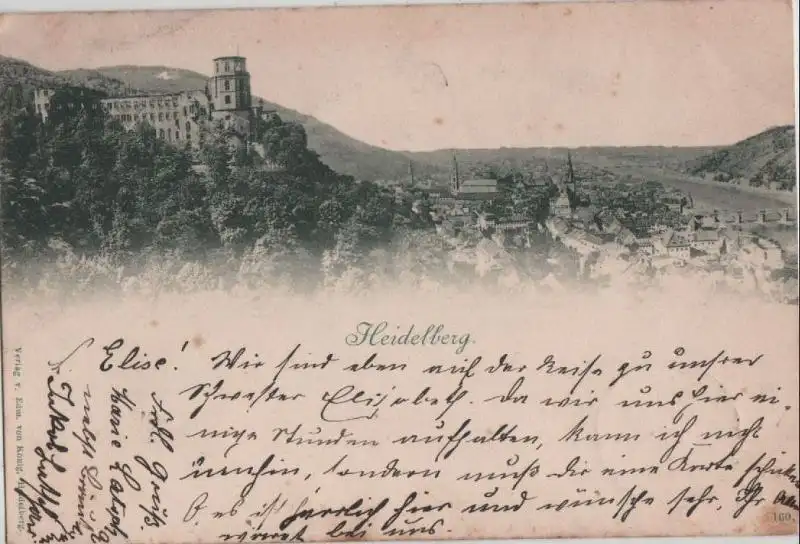 Heidelberg.
L. Elise! Wir sind eben auf der Reise zu unsrer
Schwester Elisabeth. Da wir uns hier ei-
nige Stunden aufhalten, kann ich nicht
umhin, sondern muß dir eine Karte schicken
es ist herrlich hier und wünsche sehr, Ihr
wäret bei uns.
Herzl. Gruß
Marie
nebst
Verlag v. Edm. von König, Heidelberg.
160.